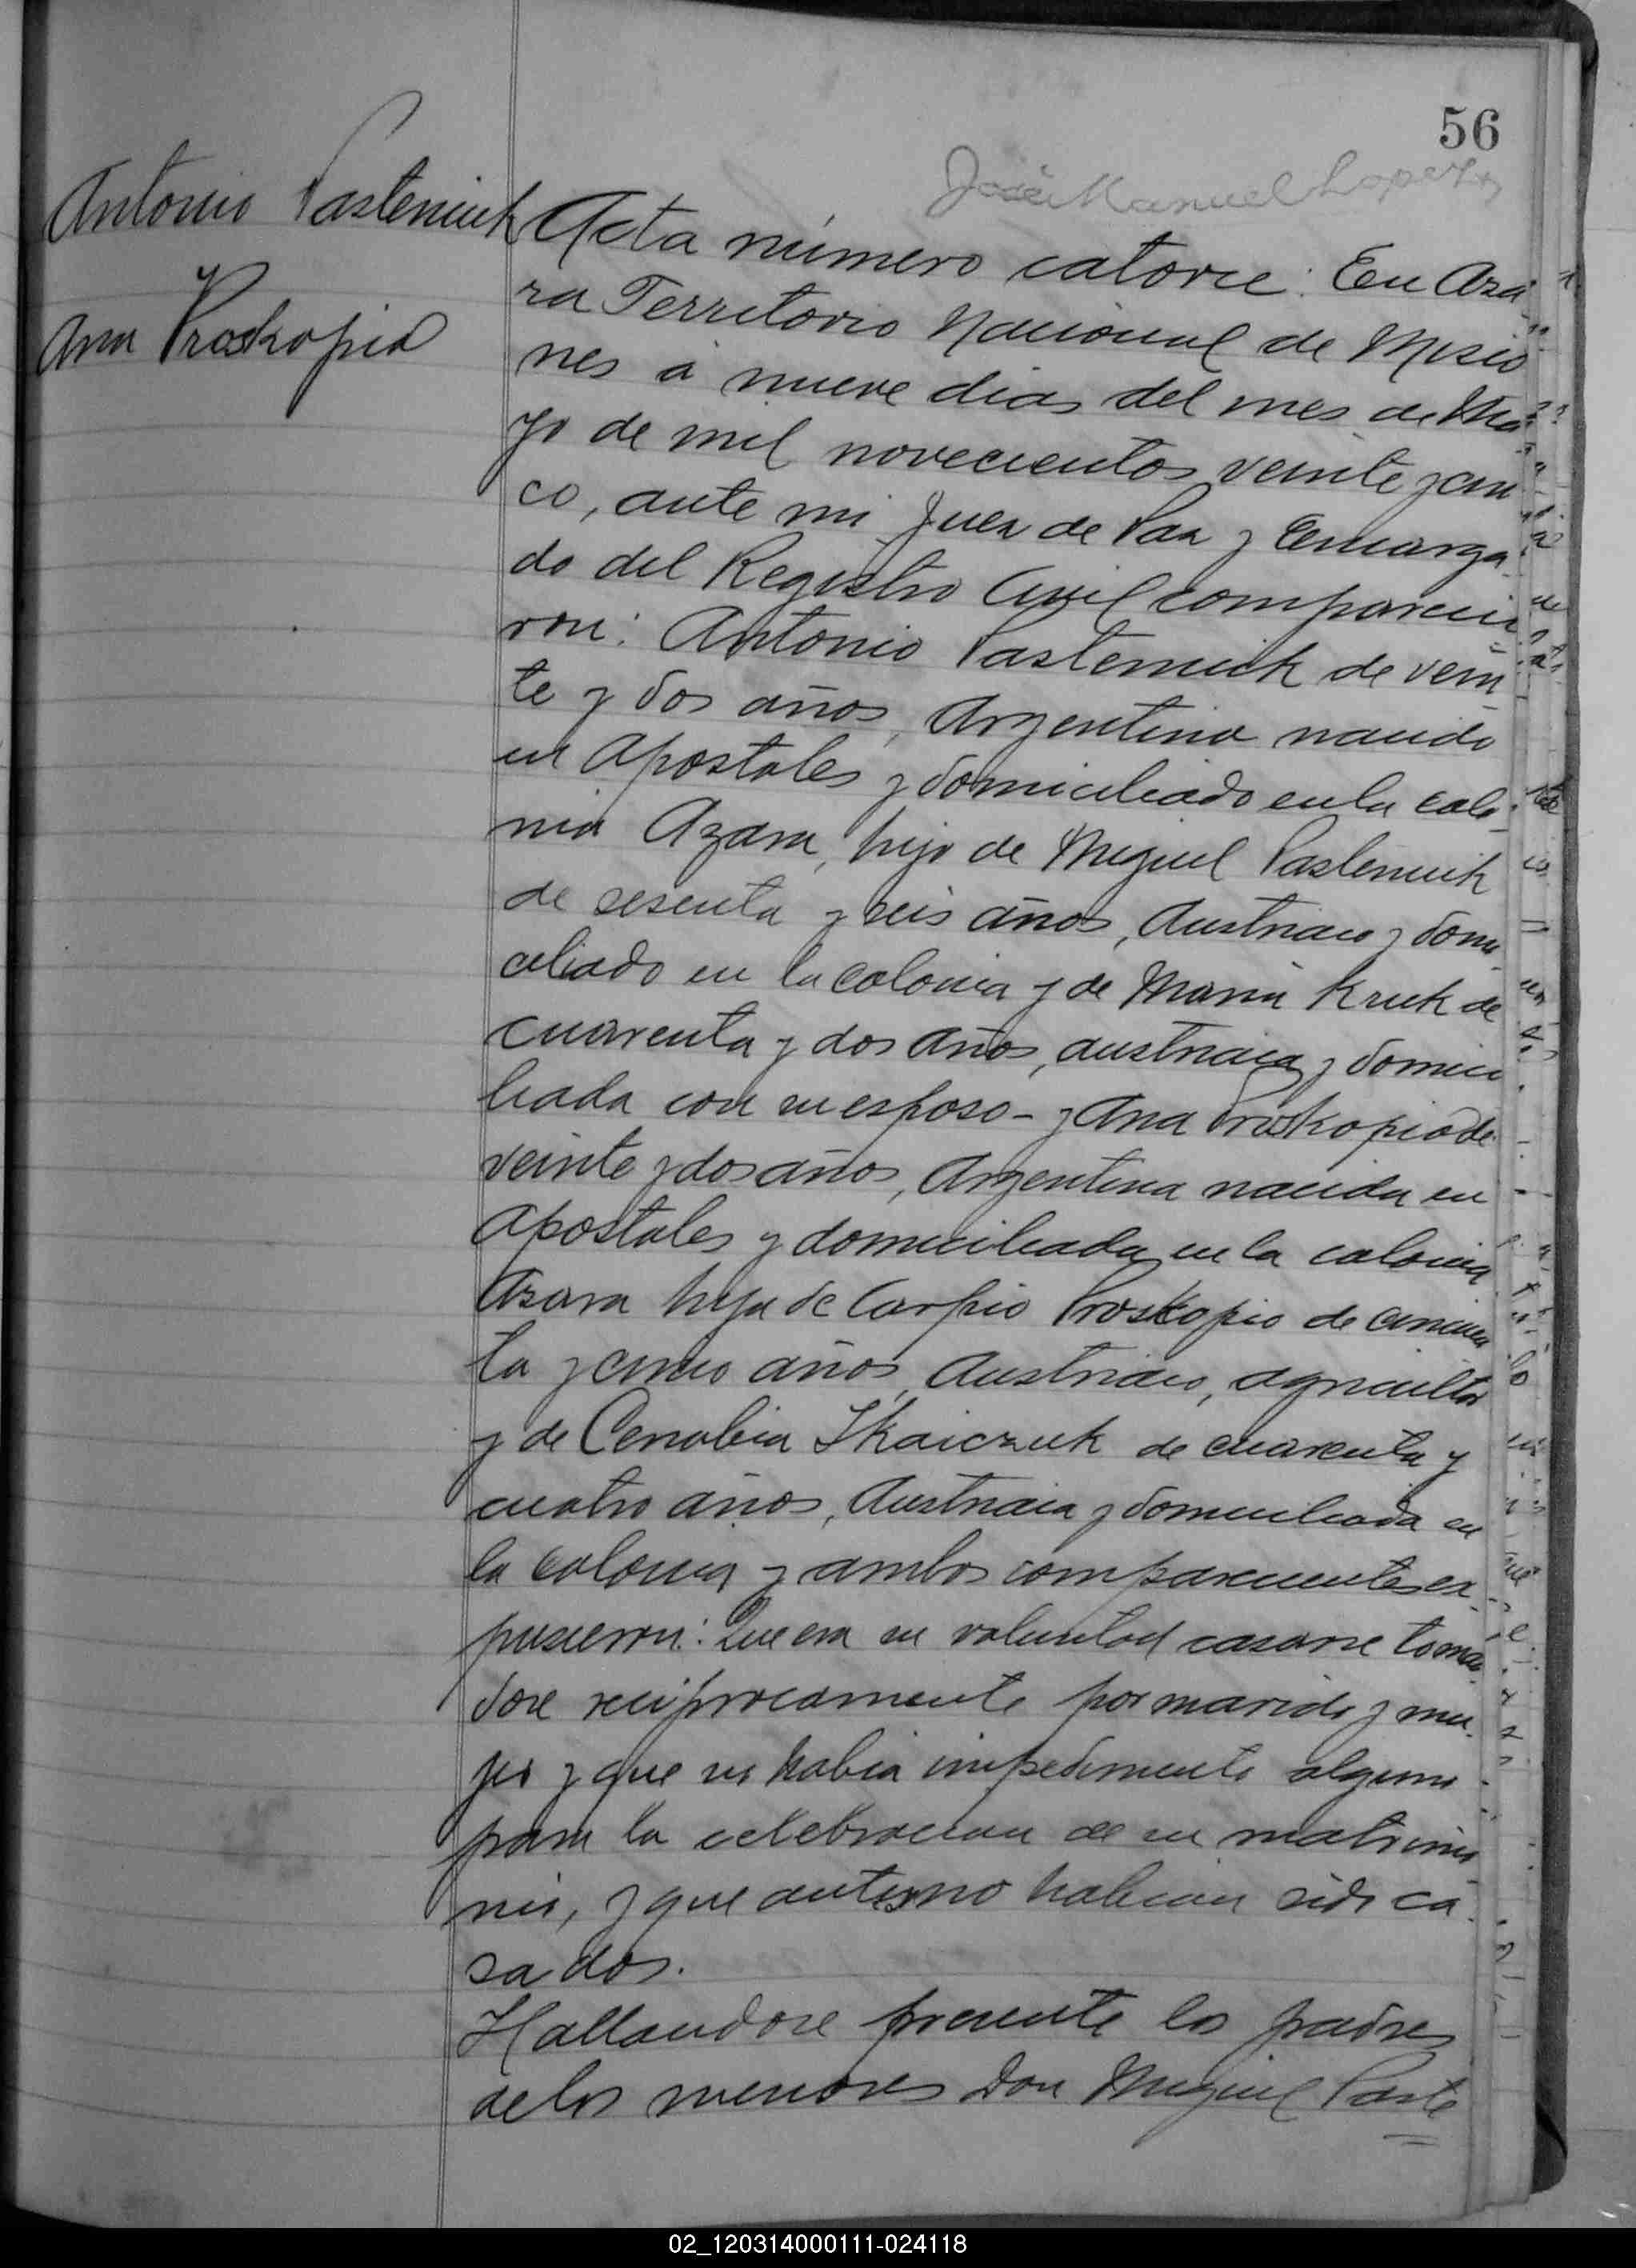 56
José Manuel Lopez
Antonio Pasteniuk
y
Ana Proskopio
Acta número catorce: En Aza
ra Territorio Nacional de Misio
nes á nueve dias del mes de Ma
yo de mil novecientos veinte y cin
co, ante mi Juez de Paz y Encarga
do del Registro Civil comparecie
ron: Antonio Pasteniuk de vein
te y dos años, Argentino nacido
en Apostoles y domiciliado en la colo
nia Azara, hijo de Miguel Pasteniuk
de sesenta y seis años, Austriaco y domi
ciliado en la colonia y de Maria Kruk de
cuarenta y dos años, austriaca y domici
liada con su esposo - y Ana Proskopio de
veinte y dos años, Argentina nacida en
Apostoles y domiciliada en la colonia
Azara hija de Carpio Proskopio de cincuen
ta y cinco años, Austriaco, agricultor
y de Cenobia Tkaiczuk de cuarenta y
cuatro años, Austriaca y domiciliada en
la colonia y ambos comparecientes ex
pusieron: Que era su voluntad casarse toman
dose reciprocamente por marido y mu
jer y que no habia impedimento alguno
para la celebracion de su matrimo
nio, y que antes no habian sido ca
sados.
Hallandose presente los padres
de los menores Don Miguel Paste
02_120314000111-024118